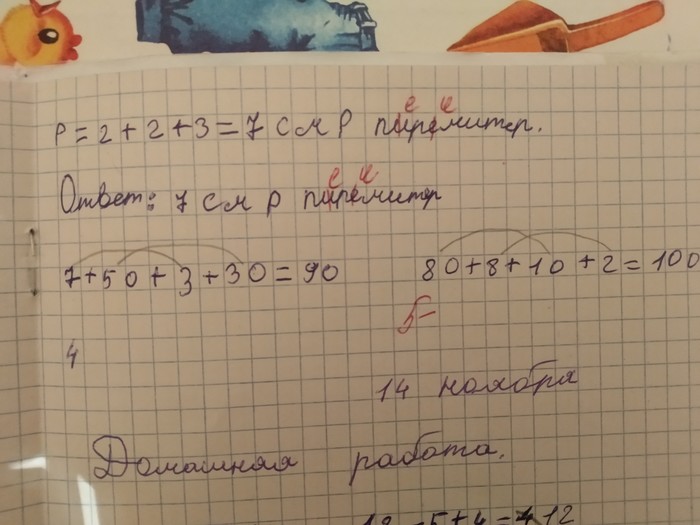 P = 2 + 2 + 3 = 7 см P пиремитер.
е и
Ответ: 7 см P пиремитер
е и
7 + 50 + 3 + 30 = 90 80 + 8 + 10 + 2 = 100
5-
4
14 ноября
Домашняя работа.